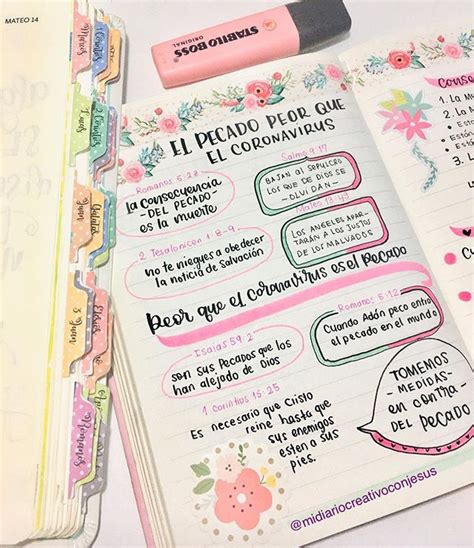 MATEO 14
STABILO BOSS
ORIGINAL
EL PECADO PEOR QUE
EL CORONAVIRUS
Romanos 6:23
La consecuencia
-DEL PECADO-
es la muerte
Salmo 9:17
BAJAN AL SEPULCRO
LOS QUE DE DIOS SE
-OLVIDAN-
2 Tesalonicen 1:8-9
no te niegues a obedecer
la noticia de Salvación
Mateo 13:49
LOS ANGELES APAR-
TARÁN A LOS JUSTOS
DE LOS MALVADOS
Peor que el coronavirus es el Pecado
Isaías 59:2
son sus Pecados que los
han alejado de Dios
Romanos 5:12
Cuando Adán peco entró
el pecado en el mundo
1 Corintios 15:25
Es necesario que Cristo
reine hasta que
sus enemigos
esten a sus
pies.
TOMEMOS
-MEDIDAS-
en contra
del
PECADO
@midiariocreativoconjesus
1. La
2. La
3. La